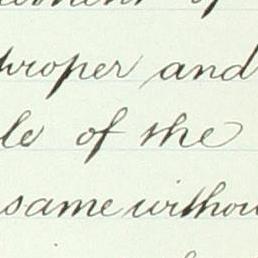 proper and
le of the
same withou